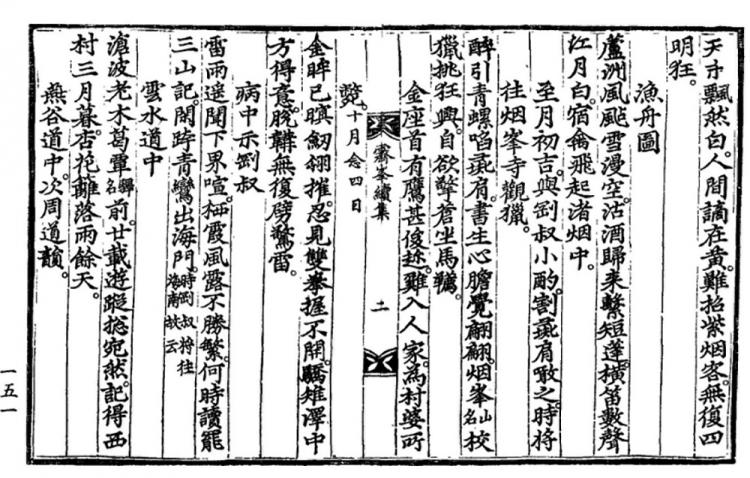 天才飄然白。人間謫在黃。難招紫烟客。無復四
明狂。
漁舟圖
蘆洲風颭雪漫空。沽酒歸來繫短蓬。橫笛數聲
江月白。宿禽飛起渚烟中。
至月初吉。與劉叔小酌。割彘肩噉之。時將
往烟峯寺觀獵。
醉引青螺啗彘肩。書生心膽覺翩翩。烟峯山名校
獵挑狂興。自欲擎蒼坐馬韉。
金座首有鷹甚俊。雖入人家。為村婆所
霽峯續集
斃。十月念四日
金眸已瞑翎摧。忍見雙拳握不開。驕雉澤中
方得意。脫韝無復劈驚雷。
病中示劉叔
雷雨遙聞下界喧。栖霞風露不勝繁。何時讀罷
三山記。閑跨青鸞出海門。時劉叔將往海南故云
雲水道中
滄波老木葛覃驛名前。廿載遊蹤摠宛然。記得西
村三月暮。杏花籬落雨餘天。
燕谷道中。次周道韻。
一五一